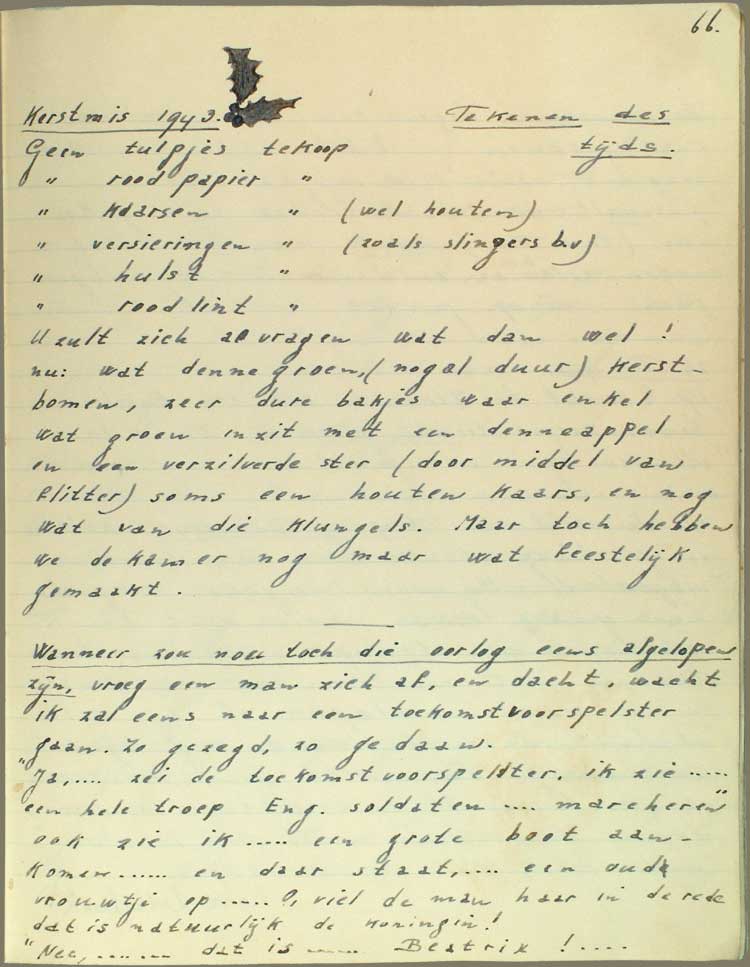 66.
Kerstmis 1943. Tekenen des
tijds.
Geen tulpjes tekoop
" rood papier "
" kaarsen " (wel houten)
" versieringen " (zoals slingers b.v)
" hulst "
" rood lint "
U zult zich afvragen wat dan wel!
nu: wat dennegroen, (nogal duur) kerst-
bomen, zeer dure bakjes waar enkel
wat groen inzit met een denneappel
en een verzilverde ster (door middel van
flitter) soms een houten kaars, en nog
wat van die klungels. Maar toch hebben
we de kamer nog maar wat feestelijk
gemaakt.
Wanneer zou nou toch die oorlog eens afgelopen
zijn, vroeg een man zich af, en dacht, wacht
ik zal eens naar een toekomstvoorspelster
gaan. Zo gezegd, zo gedaan.
"Ja,.... zei de toekomstvoorspelster, ik zie .....
een hele troep Eng. soldaten .... marcheren"
ook zie ik ..... een grote boot aan-
komen ...... en daar staat,.... een oude
vrouwtje op ......?, viel de man haar in de rede
dat is natuurlijk de koningin!
"Nee, ....... dat is ...... Beatrix ! ....